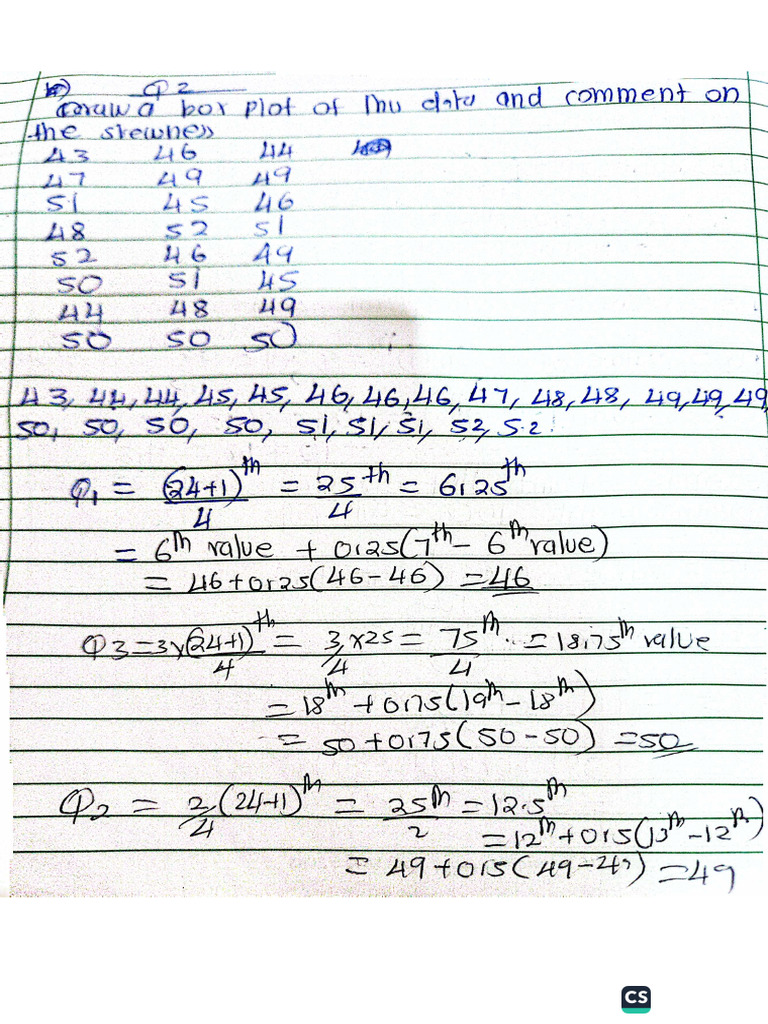 b) Q2
Draw a box plot of the data and comment on
the skewness
43 46 44
47 49 49
51 45 46
48 52 51
52 46 49
50 51 45
44 48 49
50 50 50
43, 44, 44, 45, 45, 46, 46, 46, 47, 48, 48, 49, 49, 49,
50, 50, 50, 50, 51, 51, 51, 52, 52.
Q1 = (24+1)th/4 = 25th/4 = 6.25th
= 6th value + 0.25(7th - 6th value)
= 46 + 0.25(46 - 46) = 46
Q3 = 3x(24+1)th/4 = 3/4 x 25 = 75th/4 = 18.75th value
= 18th + 0.75(19th - 18th)
= 50 + 0.75(50 - 50) = 50
Q2 = 2/4 (24+1)th = 25th/2 = 12.5th
= 12th + 0.5(13th - 12th)
= 49 + 0.5(49 - 49) = 49
CS